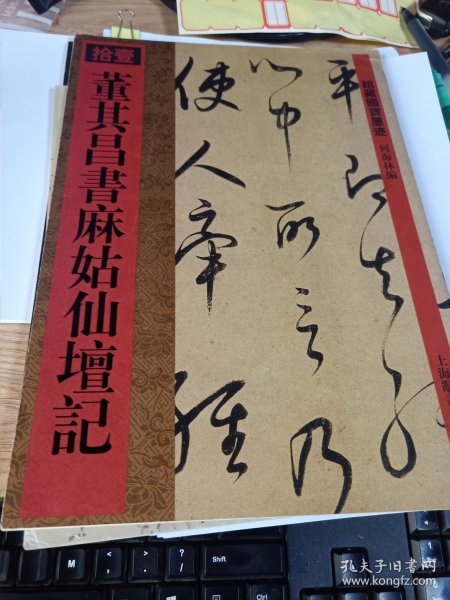 拾壹
董其昌書麻姑仙壇記
館藏國寶墨迹
何海林編
上海辭
平已知經
心中所言乃
使人牽經
M
<
,
>
.
?
/
Shift
孔夫子旧书网
www.kongfz.com